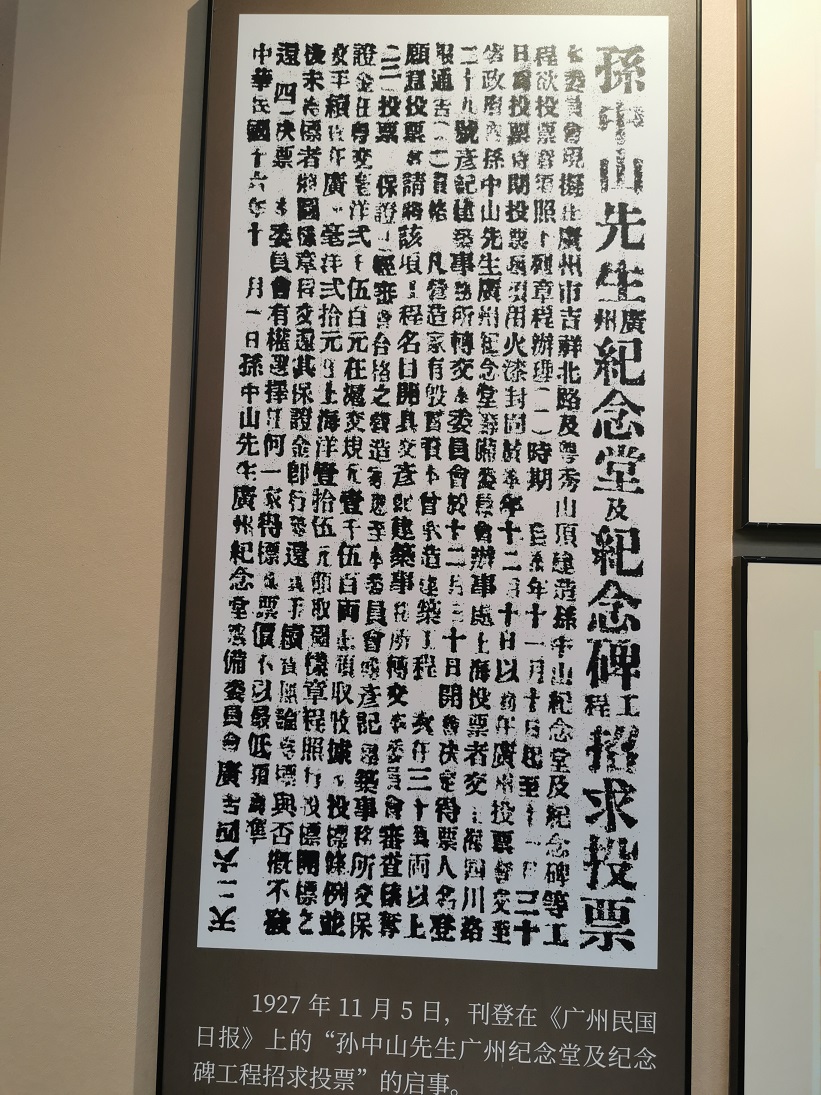 孫中山先生廣州紀念堂及紀念碑工程招求投票
本委員會現擬在廣州市吉祥北路及粤秀山頂建造孫中山紀念堂及紀念碑等工
程欲投票者須照下列章程辦理(一)時期 年十一月十日起至十一月三十
日為投票時期投票須用火漆封固於 年十二月十日以前在廣州投票者交至
省政府內孫中山先生廣州紀念堂籌備委員會辦事處上海投票者交上海四川路
二十九號彥記建築事務所轉交本委員會於十二月三十日開會决定得票人名登
報通告(二)資格 凡營造家有殷實資本曾承造建築工程 三十萬兩以上
願意投票者請將該項工程名目開具交彥記建築事務所轉交本委員會審查
(三)投票 保證 經審查合格之營造家 至本委員會或彥記建築事務所交保
證金在粤交毫洋弍千伍百元在滬交規元壹千伍百兩 領取收據 投標條例並
交手續費在廣州毫洋弍拾元在上海洋壹拾伍元領取圖樣章程照行投標開標之
後未得標者將圖樣章程交還其保證金即行發還 手續費無論 與否概不發
還 (四)决票 本委員會有權選擇任何一家得標 票價不以最低 為準
中華民國十六年十一月一日孫中山先生廣州紀念堂籌備委員會
1927 年 11 月 5 日，刊登在《广州民国
日报》上的“孙中山先生广州纪念堂及纪念
碑工程招求投票”的启事。